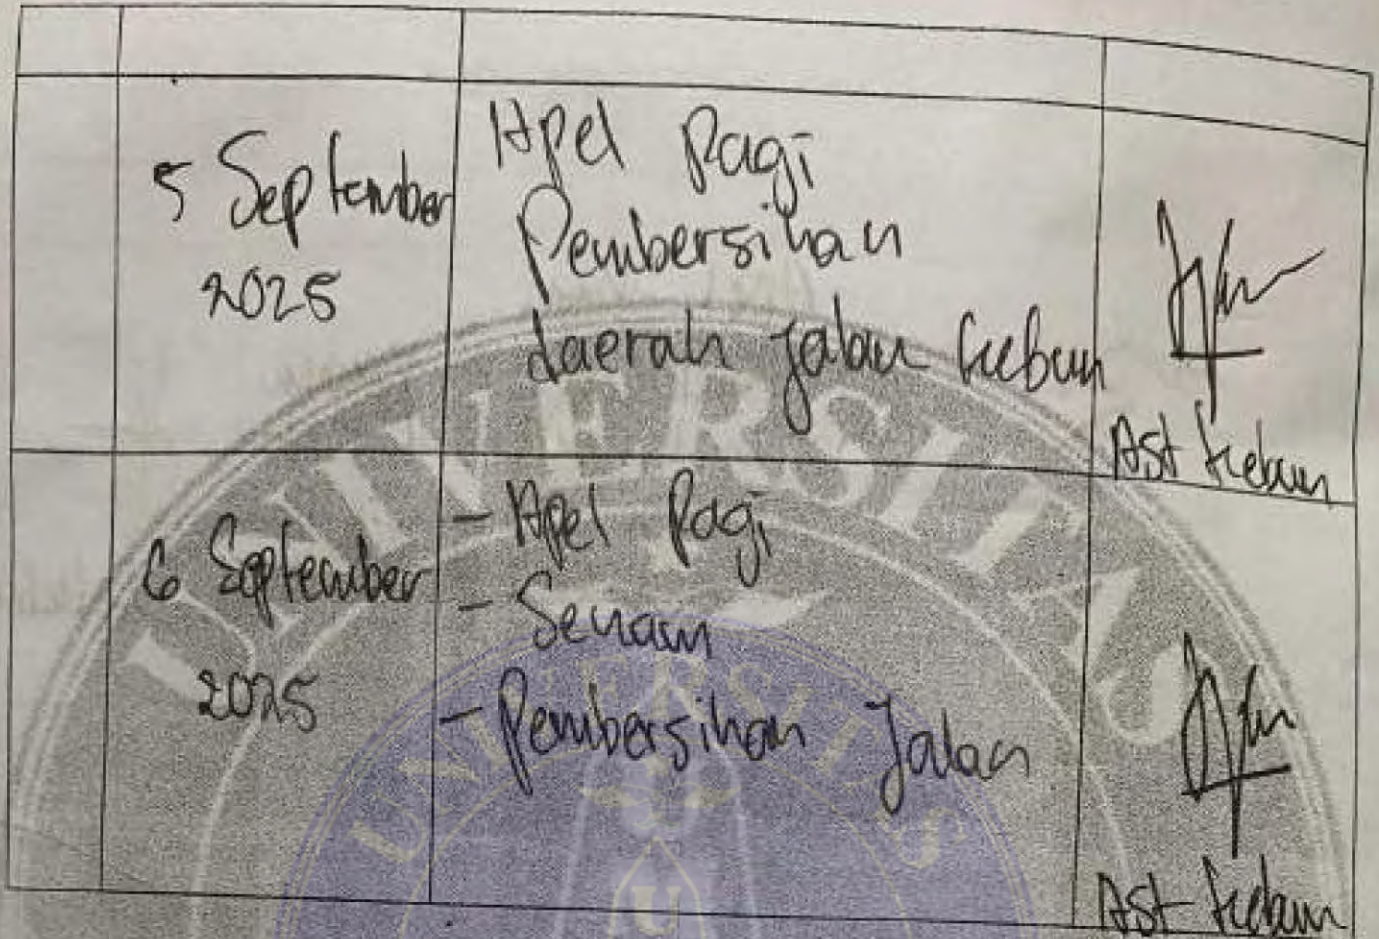 5 September
2025
Apel Pagi
Pembersihan
daerah jalan kebun
Ast kebun
6 September
2025
- Apel Pagi
- Senam
- Pembersihan Jalan
Ast kebun
UNIVERSITAS
UNIVERSITAS
U